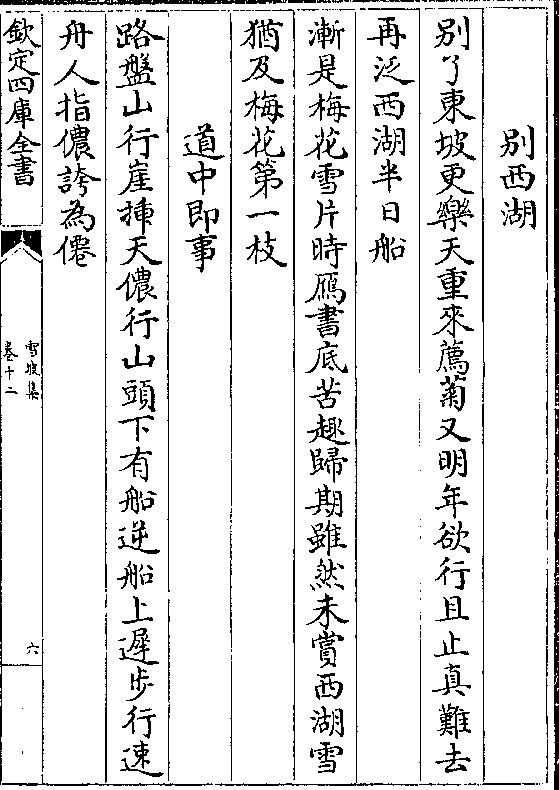 別西湖
別了東坡更樂天重來薦菊又明年欲行且止真難去
再泛西湖半日船
漸是梅花雪片時鴈書底苦趣歸期雖然未賞西湖雪
猶及梅花第一枝
道中即事
路盤山行崖揷天儂行山頭下有船逆船上遲步行速
舟人指儂誇為僊
欽定四庫全書
雪坡集
卷十二
六